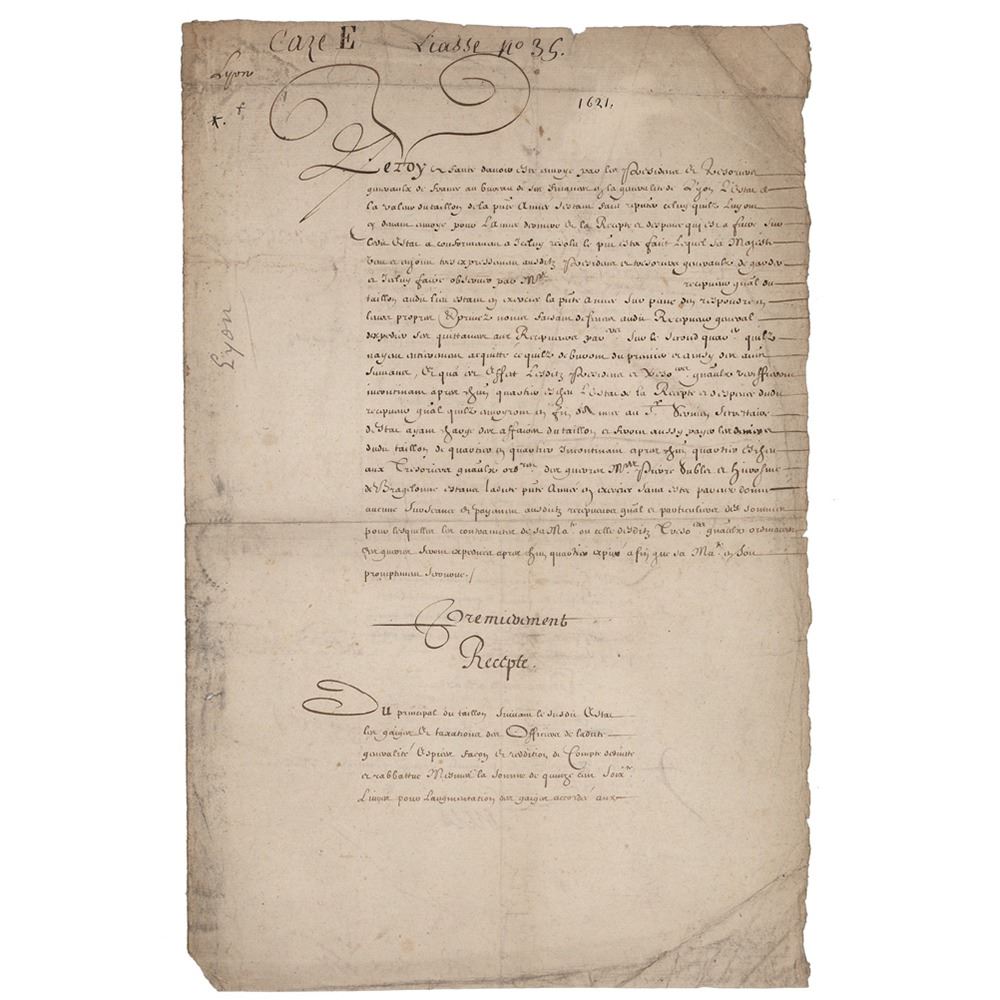 Caze E Liasse no 35.
Lyon
1621.
Le roy a faute davoir esté envoyé par les Presidens et Tresoriers
generaulx de France au bureau de ses finances en la generalité de Lyon L'estat
la valeur du taillon de la pnte Année
cy devant envoyé pour L'année derniere de la Recepte et despence qui est a faire sur
ledit Estat a conformement a Iceluy resolu le pnt estre fait Lequel sa Majesté
veut et enjoint tres expressement ausditz Presidens et tresoriers generaulx de garder
et Iceluy faire observer par Mre recepveur gnal du
taillon audit lieu estant en exercice la pnte Année sur peine den respondre en
leurs propres Et privez noms faisant defences audit Recepveur general
dexpedier ses quittances aux Recepveurs par sur le second quar quilz
nayent entierement acquitté ce quilz debvront du premier et ainsy des autres
suivans, Et qua cet effet Lesditz Presidens et Treso gnaulx
incontinant apres chun quartier escheu L'estat de la Recepte et despence dudit
recepveur gnal quilz envoyront en fin au Sr Secretaire
destat ayant charge des affaires du taillon et seront aussy payez les deniers
dudit taillon de quartier en quartier Incontinant apres chun quartier escheu
aux Tresoriers gnaulx ordres des guerres Mes Pierre Dublet et Hierosme
de Bragelonne estant ladite pnte Année en exercice sans estre par eux donné
aucune surseance et payement ausditz recepveurs gnal et particuliers des sommes
pour lesquelles les contraintes de sa Maté ou celle desditz Tresoers gnaulx ordinaires
des guerres seront expediees apres chun quartier expiré afin que sa Maté en soit
promptement secourue./
Premierement
Recepte.
Du principal du taillon suivant le susdit Estat
les gaiges et taxations des Officiers de ladite
generalité Espices façon et reddition de Compte desduitz
et rabbattus Mesmes la somme de quinze cens soixte
Livres pour laugmentation des gaiges accordés aux
Lyon